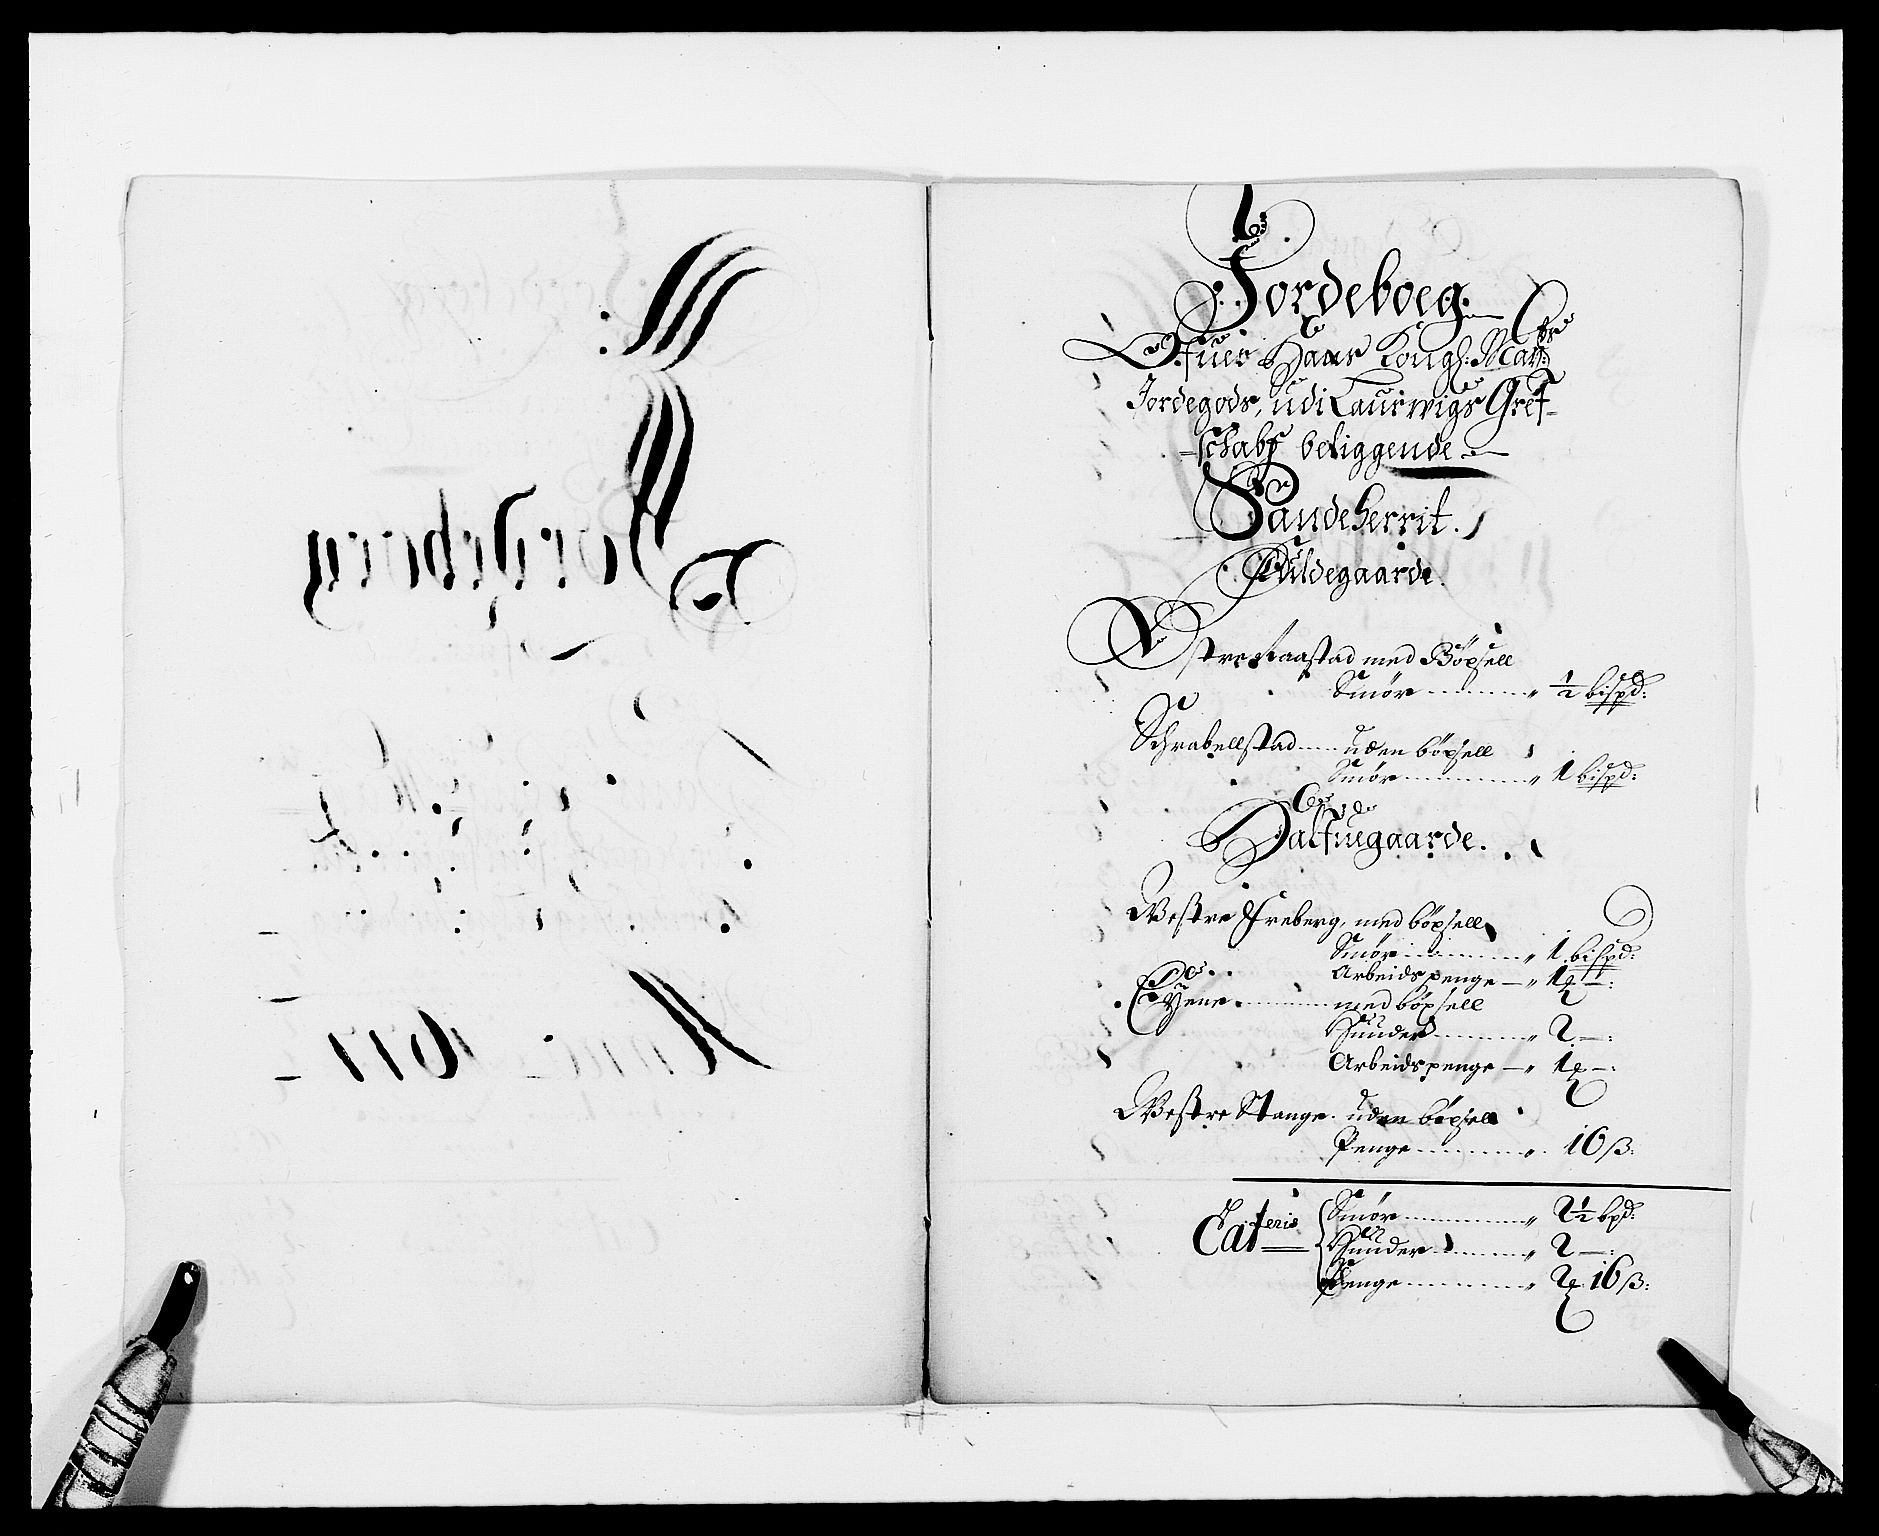 Jordeboeg
Ofuer Hans Kongl: Maytz
Jordegods, udi Laurwigs Gref-
-schabs beliggende
Sandeherrit.
Fuldegaarde.
Østre Raastad med Böxsell
Smör " ½ bispd:
Schrabellstad uden böxsell
Smör " 1 bispd:
Halfuegaarde.
Westre Freberg, med böxsell
Smör " 1 bispd:
Arbeidspenge " 1
med böxsell
Hunder " 2 –:
Arbeidspenge " 1 –:
Westre Stange. uden böxsell
Penge " 16 ß:
Lateris
Smör " 2½ bpd:
Hunder " 2 –:
Penge " 2 16 ß: